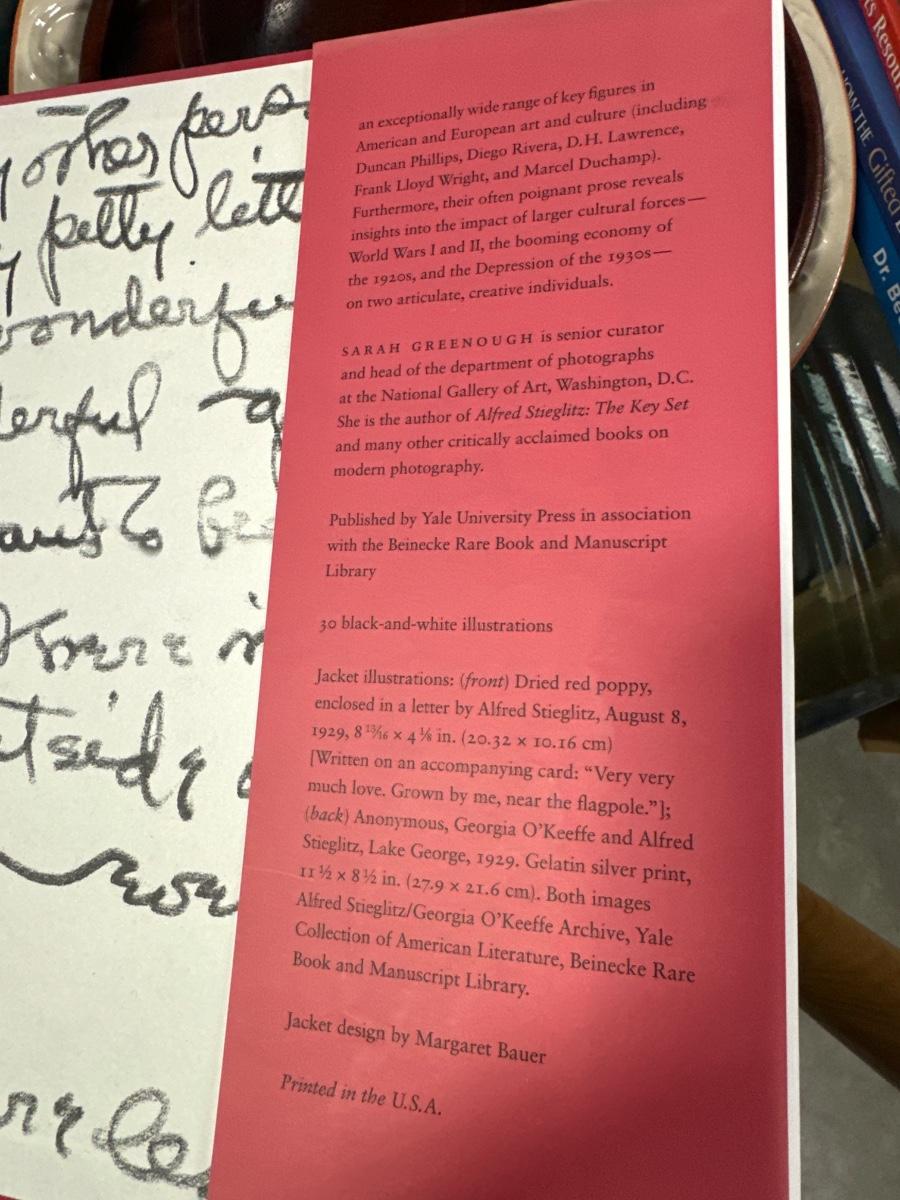 other pers
petty lett
wonderful
derful a
Know i
tside
an exceptionally wide range of key figures in
American and European art and culture (including
Duncan Phillips, Diego Rivera, D.H. Lawrence,
Frank Lloyd Wright, and Marcel Duchamp).
Furthermore, their often poignant prose reveals
insights into the impact of larger cultural forces—
World Wars I and II, the booming economy of
the 1920s, and the Depression of the 1930s—
on two articulate, creative individuals.
SARAH GREENOUGH is senior curator
and head of the department of photographs
at the National Gallery of Art, Washington, D.C.
She is the author of Alfred Stieglitz: The Key Set
and many other critically acclaimed books on
modern photography.
Published by Yale University Press in association
with the Beinecke Rare Book and Manuscript
Library
30 black-and-white illustrations
Jacket illustrations: (front) Dried red poppy,
enclosed in a letter by Alfred Stieglitz, August 8,
1929, 8 13/16 × 4 1/8 in. (20.32 × 10.16 cm)
[Written on an accompanying card: “Very very
much love. Grown by me, near the flagpole.”];
(back) Anonymous, Georgia O’Keeffe and Alfred
Stieglitz, Lake George, 1929. Gelatin silver print,
11 ½ × 8 ½ in. (27.9 × 21.6 cm). Both images
Alfred Stieglitz/Georgia O’Keeffe Archive, Yale
Collection of American Literature, Beinecke Rare
Book and Manuscript Library.
Jacket design by Margaret Bauer
Printed in the U.S.A.
THE Gifted
Dr. Be